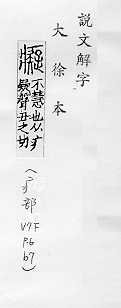 說文解字
大徐本
癡
不慧也从疒
疑聲丑之切
(疒部
V7F
P6
b7)